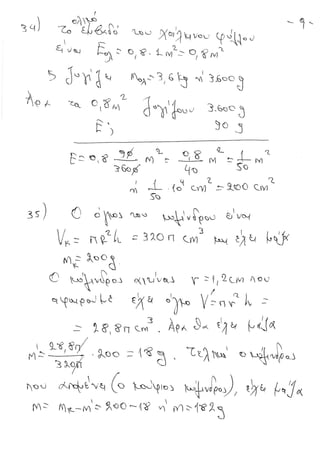 - 9 -
34) Το εμβαδό του ολικό χάλκινου φύλλου
είναι Eολ = 0,8 · 1m² = 0,8m²
& ζυγίζει mολ = 3,6kg ή 3600g
Άρα τα 0,8m² ζυγίζουν 3.600g
E; 90g
E = 0,8 90/3600 m² = 0,8/40 m² = 1/50 m²
ή 1/50 · 10⁴ cm² = 200 cm²
35) Ο όγκος του κυλίνδρου είναι
Vκ = πR²h = 320π cm³ και έχει μάζα
mκ = 200g
Ο κύλινδρος ακτίνας r = 1,2cm που
αφαιρούμε έχει όγκο V' = πr²h =
= 28,8π cm³. Άρα θα έχει μάζα
m' = 28,8π/320π · 200 = 18g. Τελικά ο κύλινδρος
που απομένει (ο κούφιος κύλινδρος), έχει μάζα
m = mκ - m' = 200 - 18 ή m = 182g